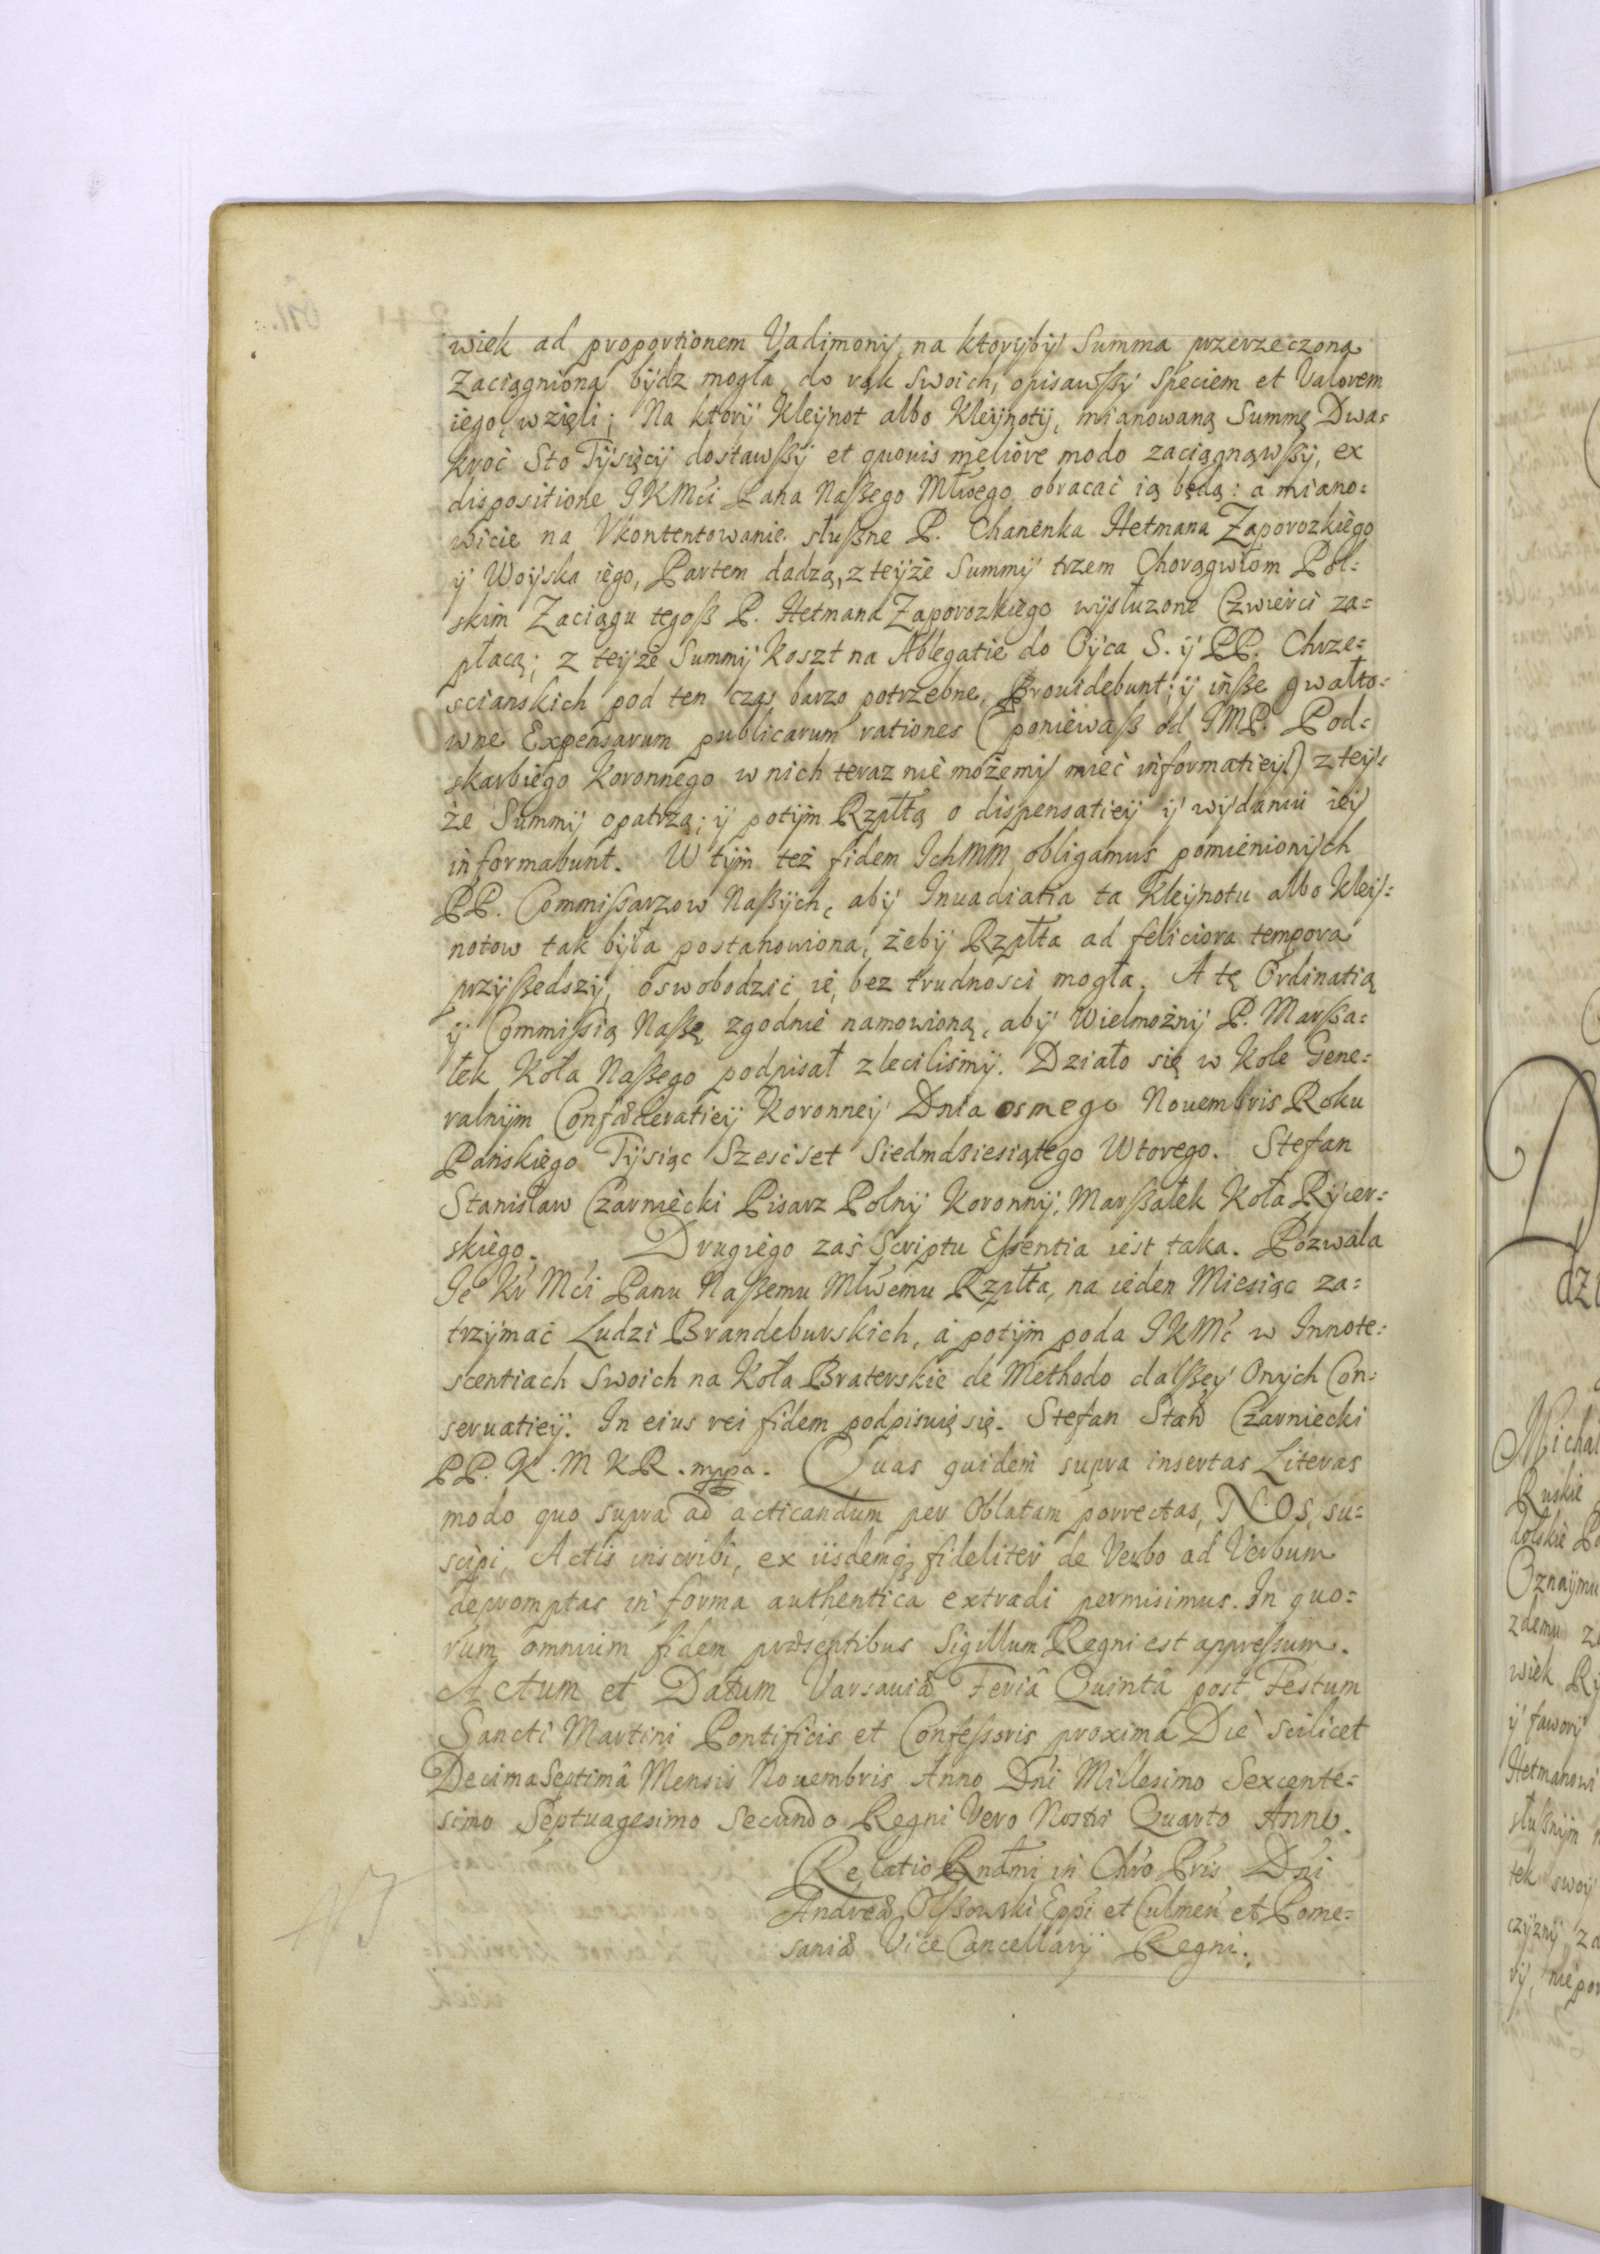 wiek ad proportionem Vadimonij, na ktoryby Summa przerzeczona
Zaciągniona bydz mogła do rąk swoich, opisawßy speciem et Valorem
iego, wzięli; Na ktory Kleynot albo Kleynoty, mianowaną Summę Dwa-
kroć Sto Tysięcy dostawßy et quouis meliore modo zaciągnąwßy, ex
dispositione JKMći Pana Naßego Młwego obracać ią będą: a miano-
wicie na Vkontentowanie słußne P. Chanenka Hetmana Zaporozkiego
y Woyska iego, Partem dadzą, z teyże Summy trzem Chorągwiom Pol-
skim Zaciągu tegoß P. Hetmana Zaporozkiego wysłuzone Czwierci za-
płacą; z teyże Summy Koszt na Ablegatie do Oyca S. y PP. Chrze-
scianskich pod ten czas barzo potrzebne, Prouidebunt; y inße gwałto-
wne Expensarum publicarum rationes (poniewaß od JMP. Pod-
skarbiego Koronnego w nich teraz nie możemy mieć informatiey) z tey-
że Summy opatrzą; y potym Rzpłtą o dispensatiey y wydaniu iey
informabunt. W tym też fidem Ichmm obligamus pomienionych
PP. Commißarzow Naßych, aby Inuadiatia ta Kleynotu albo Kley-
notow tak była postanowiona, żeby Rzpłta ad feliciora tempora
przyßedszy, oswobodzić ie, bez trudnosci mogła. A tę Ordinatią
y Commißią Naßę zgodnie namowioną, aby Wielmożny P. Marßa-
łek Koła Naßego podpisał zlecilismy. Działo się w Kole Gene-
ralnym Confæderatiey Koronney Dnia osmego Nouembris Roku
Pańskiego Tysiąc Szescset Siedmdziesiątego Wtorego. Stefan
Stanisław Czarniecki Pisarz Polny Koronny, Marßałek Koła Rycer-
skiego. Drugiego zaś Scriptu Eßentia iest taka. Pozwala
Je Kr Mći Panu Naßemu Młwemu Rzpłta, na ieden Miesiąc za-
trzymać Ludzi Brandeburskich, a potym poda JKMć w Innote-
scentiach swoich na Koła Braterskie de Methodo dalßey Onych Con-
seruatiey. In eius rei fidem podpisuię się. Stefan Stan Czarniecki
PP. K. M K R. mpa. Quas quidem supra insertas Literas
modo quo supra ad acticandum per Oblatam porrectas, NOS, su-
scipi, Actis inscribi, ex iisdemq fideliter de Verbo ad Verbum
depromptas in forma authentica extradi permisimus. In quo-
rum omnium fidem præsentibus Sigillum Regni est appreßum.
Actum et Datum Varsauiæ Feriâ Quintâ post Festum
Sancti Martini Pontificis et Confeßoris proxima Die scilicet
Decima Septimâ Mensis Nouembris Anno Dni Millesimo Sexcente-
simo Septuagesimo Secundo Regni Vero Nostri Quarto Anno.
Relatio Rndmi in Chro Pris Dni
Andreæ Olßowski Eppi et Culmen et Pome-
saniæ Vice Cancellarij Regni.